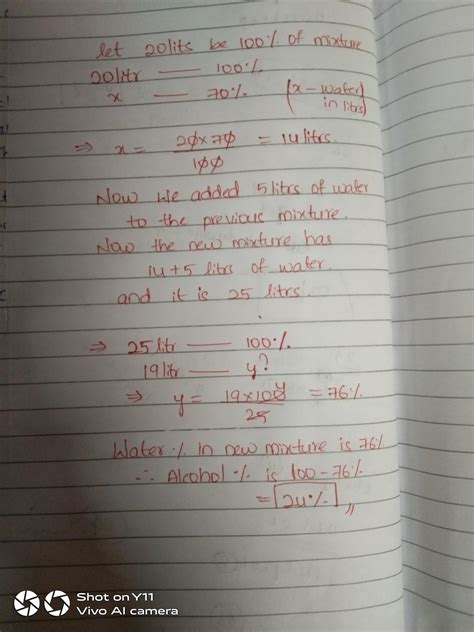 let 20lits be 100% of mixture
20litr — 100%.
x — 70%. (x - water in litrs)
⇒ x = 20×70/100 = 14 litrs.
Now we added 5 litrs of water
to the previous mixture.
Now the new mixture has
14+5 litrs of water.
and it is 25 litrs.
⇒ 25 litr — 100%.
19 litr — y?
⇒ y = 19×100/25 = 76%.
Water % in new mixture is 76%
∴ Alcohol % is 100-76%
= 24%.
Shot on Y11
Vivo AI camera